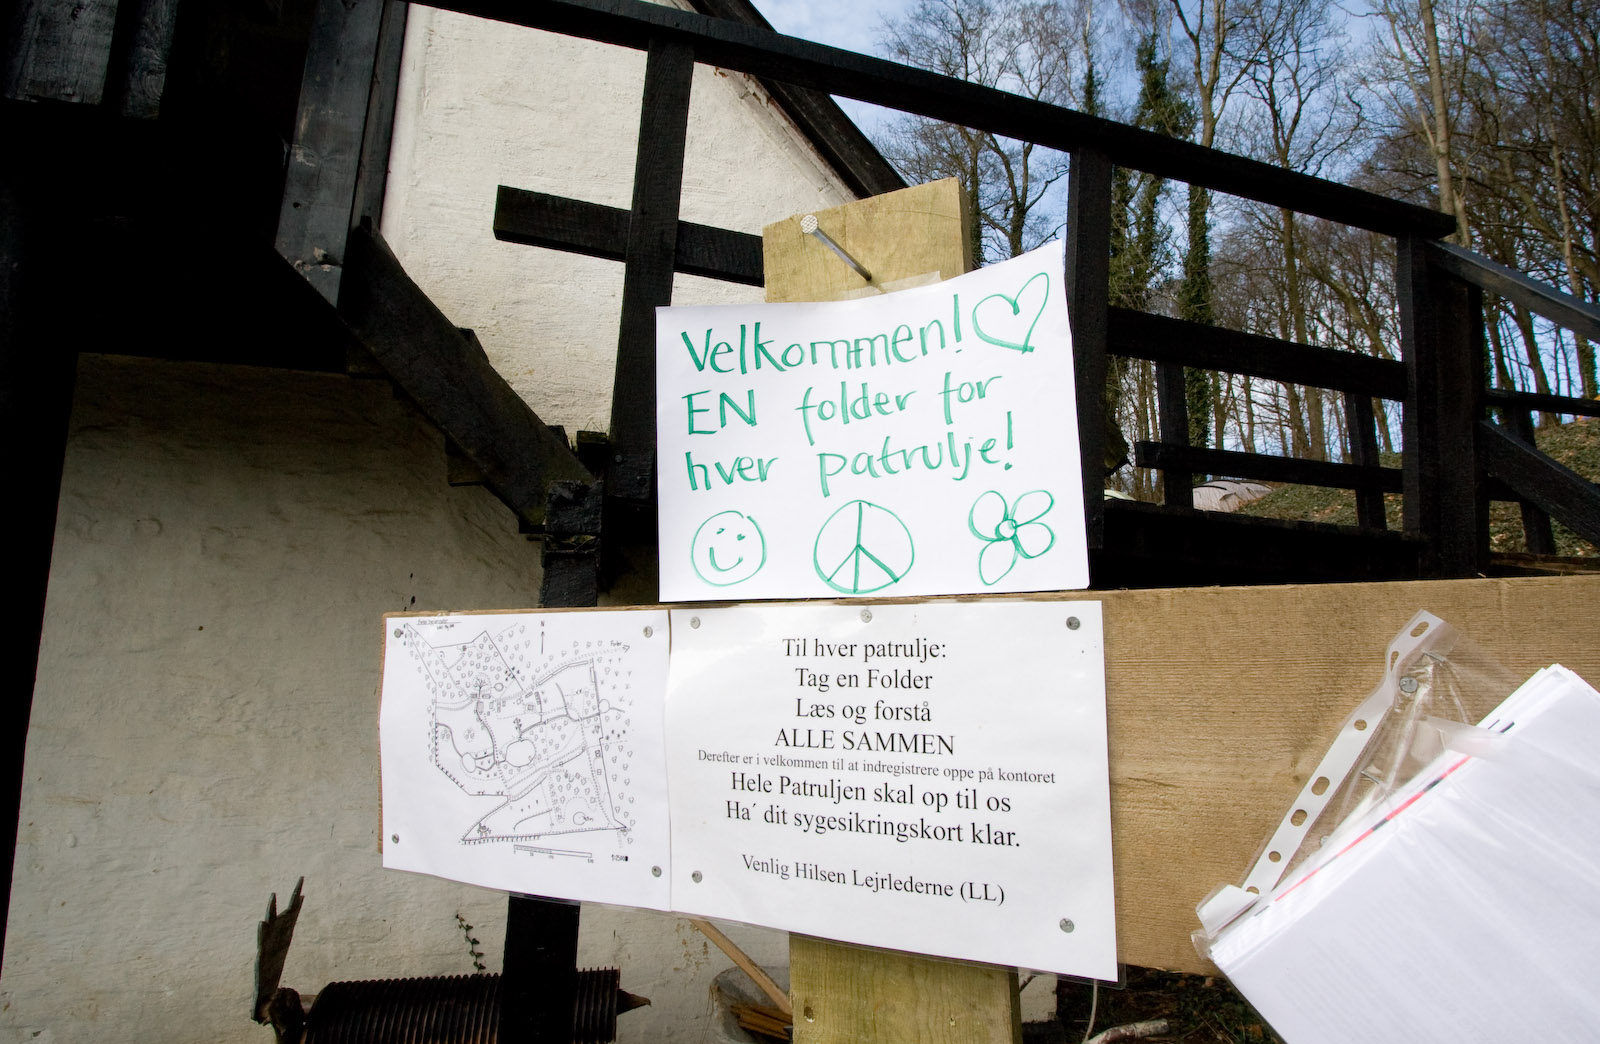 Velkommen!
EN folder for
hver patrulje!
N
Til hver patrulje:
Tag en Folder
Læs og forstå
ALLE SAMMEN
Derefter er i velkommen til at indregistrere oppe på kontoret
Hele Patruljen skal op til os
Ha´ dit sygesikringskort klar.
Venlig Hilsen Lejrlederne (LL)